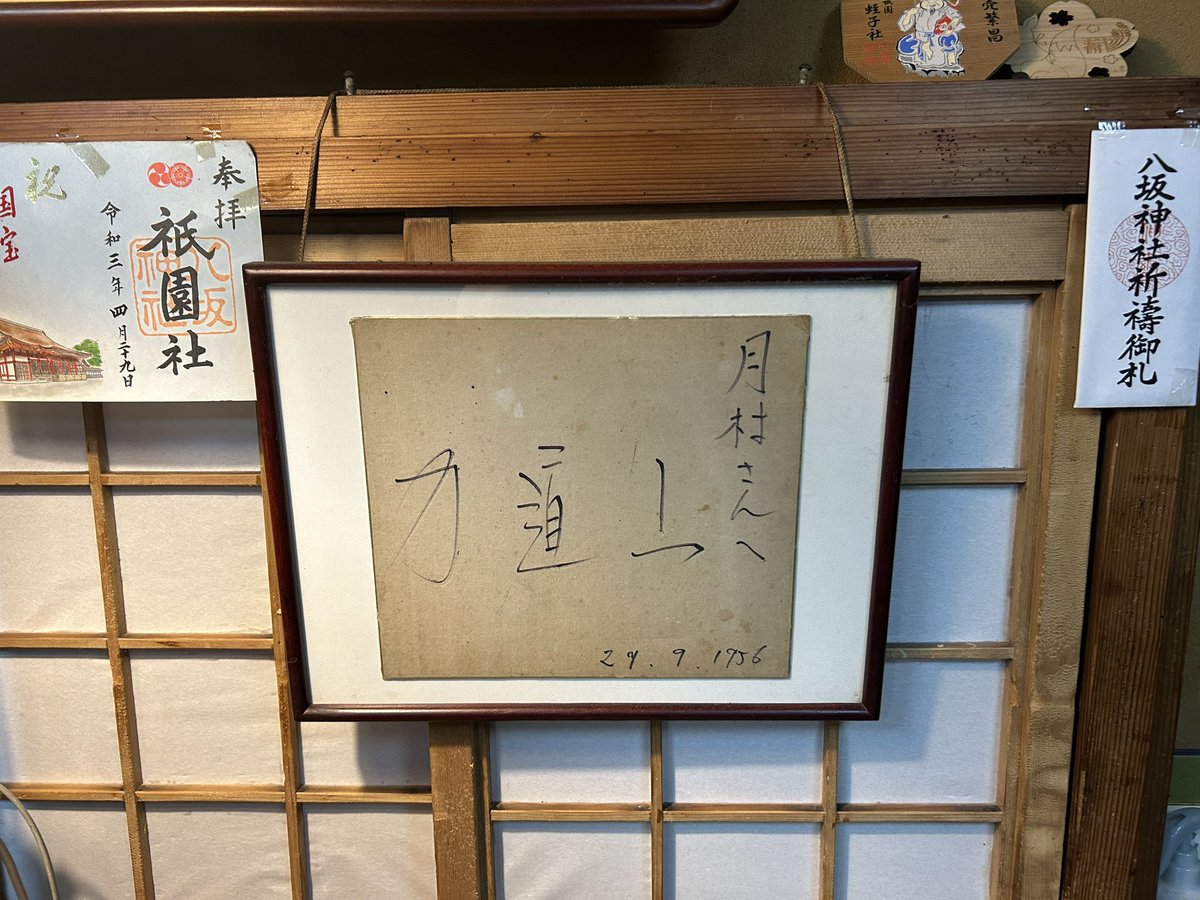 売繁昌
祇園
蛭子社
奉拝
祇園社
八坂神社
令和三年四月二十九日
祝
国宝
月村さんへ
力道山
24.9.1956
八坂神社祈禱御札